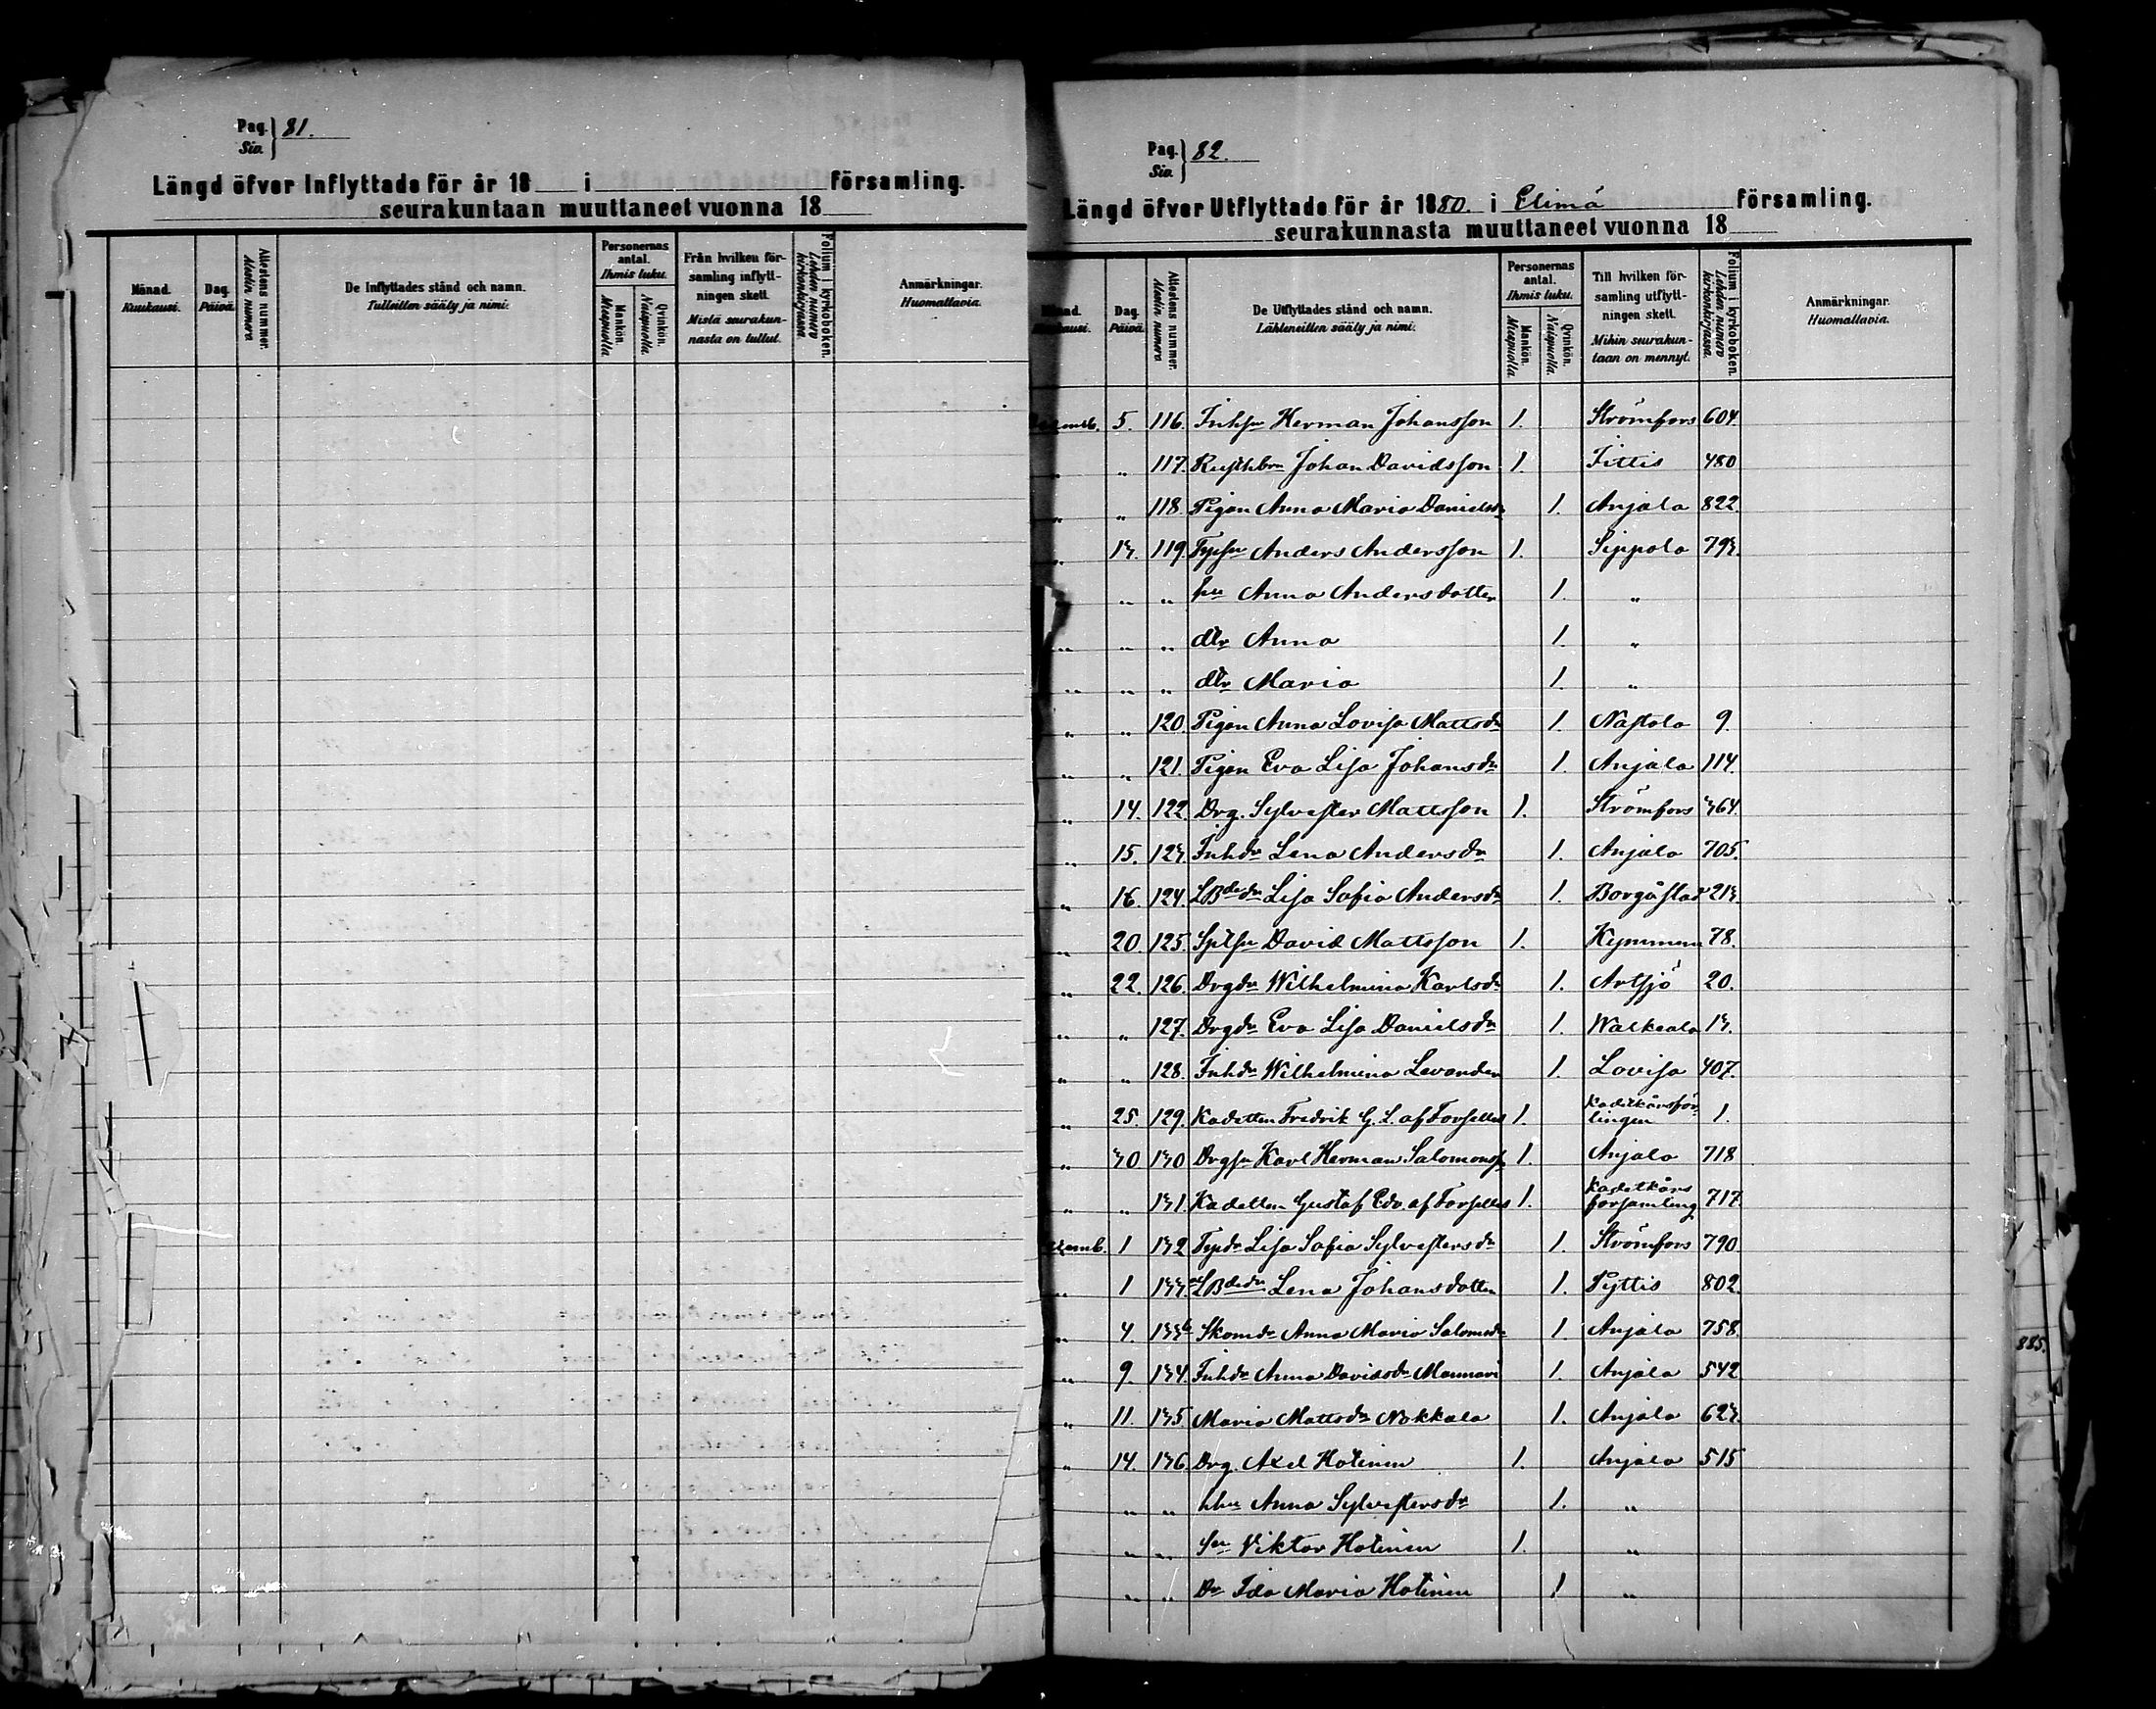 Pag. 81.
Siv.
Längd öfver Inflyttade för år 18 i församling.
seurakuntaan muuttaneet vuonna 18
Månad. Kuukausi.
Dag. Päivä.
Attestens nummer. Atestin numero
De Inflyttades stånd och namn. Tulleitten sääty ja nimi.
Personernas antal. Ihmis luku.
Mankön. Miespuolta
Qvinkön. Naispuolta
Från hvilken församling inflyttningen skett. Mistä seurakunnasta on tullut.
Folium i kyrkoboken. Lehden numero kirkonkirjassa
Anmärkningar. Huomattavia.
Pag. 82.
Siv.
Längd öfver Utflyttade för år 1880. i Elimä församling.
seurakunnasta muuttaneet vuonna 18
Dag. Päivä.
Attestens nummer. Atestin numero
De Utflyttades stånd och namn. Lähteneitten sääty ja nimi.
Personernas antal. Ihmis luku.
Mankön. Miespuolta
Qvinkön. Naispuolta.
Till hvilken församling utflyttningen skett. Mihin seurakuntaan on mennyt.
Folium i kyrkoboken. Lehden numero kirkonkirjassa.
Anmärkningar. Huomattavia.
5. 116. Inhsn Herman Johansson 1. Strömfors 604.
" " 117. Rusthbn Johan Davidsson 1. Pittis 480
" " 118. Pigan Anna Maria Danielsd 1. Anjala 822.
" 13. 119. Typsn Anders Andersson 1. Sippola 793.
" " hu Anna Andersdotter 1. "
" " " dtr Anna 1. "
" " " dtr Maria 1. "
" " 120. Pigan Anna Lovisa Mattsdr 1. Nastola 9.
" " 121. Pigan Eva Lisa Johansdr 1. Anjala 114.
" 14. 122. Drg. Sylvester Mattsson 1. Strömfors 364.
" 15. 123. Inhdr Lena Andersdr 1. Anjala 705.
" 16. 124. LBdedr Lisa Sofia Andersdr 1. Borgå stad 213.
" 20. 125. Sptsn David Mattsson 1. Kymmene 78.
" 22. 126. Drgdr Wilhelmina Karlsdr 1. Artsjö 20.
" " 127. Drgdr Eva Lisa Danielsdr 1. Walkeala 13.
" " 128. Inhdr Wilhelmina Levander 1. Lovisa 407.
" 25. 129. Kadetten Fredrik G. L. af Forselles 1. Kadetkårsförlingen 1.
" 30 130 Drgsn Karl Herman Salomonss 1. Anjala 718
" " 131. Kadetten Gustaf Edv. af Forselles 1. Kadetkårs församling 717.
cemb. 1 132 Typdr Lisa Sofia Sylvestersdr 1. Strömfors 790
" 1 133a LBdedr Lena Johansdotter 1. Pyttis 802.
" 4. 133b Skomdr Anna Maria Salomsdr 1. Anjala 758.
" 9. 134. Inhdr Anna Davidsdr Mannari 1. Anjala 542
" 11. 135 Maria Mattsdr Nokkala 1. Anjala 623.
" 14. 136. Drg. Axel Hotinen 1. Anjala 515
" " hu Anna Sylvestersdr 1. "
" " Sn Viktor Hotinen 1. "
" " Dr Ida Maria Hotinen 1 "
885.